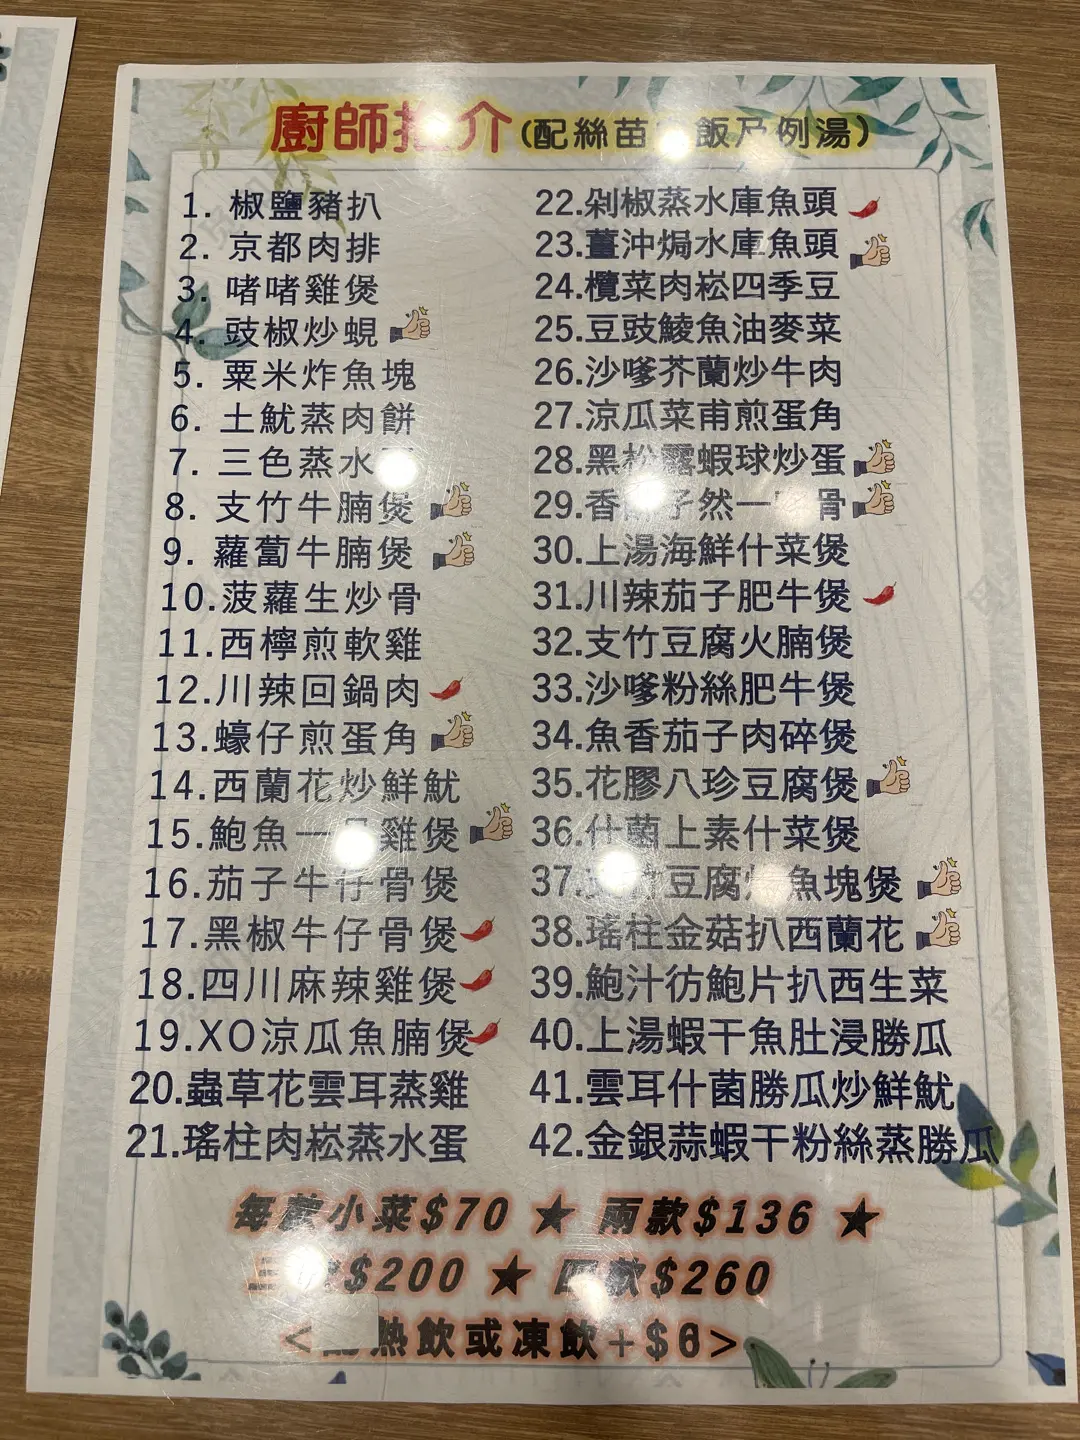 廚師推介(配絲苗 飯及例湯)
1. 椒鹽豬扒
2. 京都肉排
3. 啫啫雞煲
4. 豉椒炒蜆
5. 粟米炸魚塊
6. 土魷蒸肉餅
7. 三色蒸水
8. 支竹牛腩煲
9. 蘿蔔牛腩煲
10.菠蘿生炒骨
11.西檸煎軟雞
12.川辣回鍋肉
13.蠔仔煎蛋角
14.西蘭花炒鮮魷
15.鮑魚一 雞煲
16.茄子牛仔骨煲
17.黑椒牛仔骨煲
18.四川麻辣雞煲
19.XO涼瓜魚腩煲
20.蟲草花雲耳蒸雞
21.瑤柱肉崧蒸水蛋
22.剁椒蒸水庫魚頭
23.薑沖焗水庫魚頭
24.欖菜肉崧四季豆
25.豆豉鯪魚油麥菜
26.沙嗲芥蘭炒牛肉
27.涼瓜菜甫煎蛋角
28.黑松露蝦球炒蛋
29.香 孑然一 骨
30.上湯海鮮什菜煲
31.川辣茄子肥牛煲
32.支竹豆腐火腩煲
33.沙嗲粉絲肥牛煲
34.魚香茄子肉碎煲
35.花膠八珍豆腐煲
36.什菌上素什菜煲
37. 竹豆腐 魚塊煲
38.瑤柱金菇扒西蘭花
39.鮑汁彷鮑片扒西生菜
40.上湯蝦干魚肚浸勝瓜
41.雲耳什菌勝瓜炒鮮魷
42.金銀蒜蝦干粉絲蒸勝瓜
每款小菜$70 ★ 兩款$136 ★
三款$200 ★ 四款$260
< 熱飲或凍飲+$6>